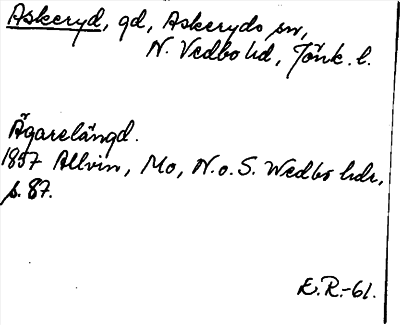 Askeryd, gd, Askeryds sn,
N. Vedbo hd, Jönk. l.
Ägarelängd.
1857 Allvin, Mo, N. o. S. Wedbo hdr,
s. 87.
E. R. -61.